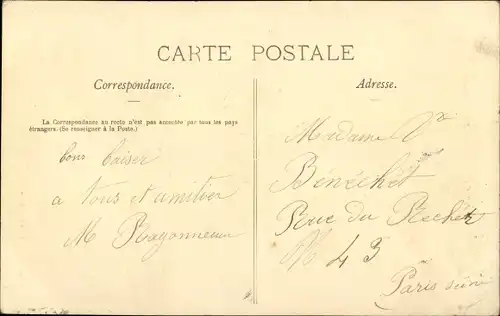 CARTE POSTALE
Correspondance.
La Correspondance au recto n'est pas acceptée par tous les pays
étrangers. (Se renseigner à la Poste.)
bons baiser
a tous et amitier
M Rayonneau
Adresse.
Madame Ve
Bénéchèt
Rue du
N 43
Paris